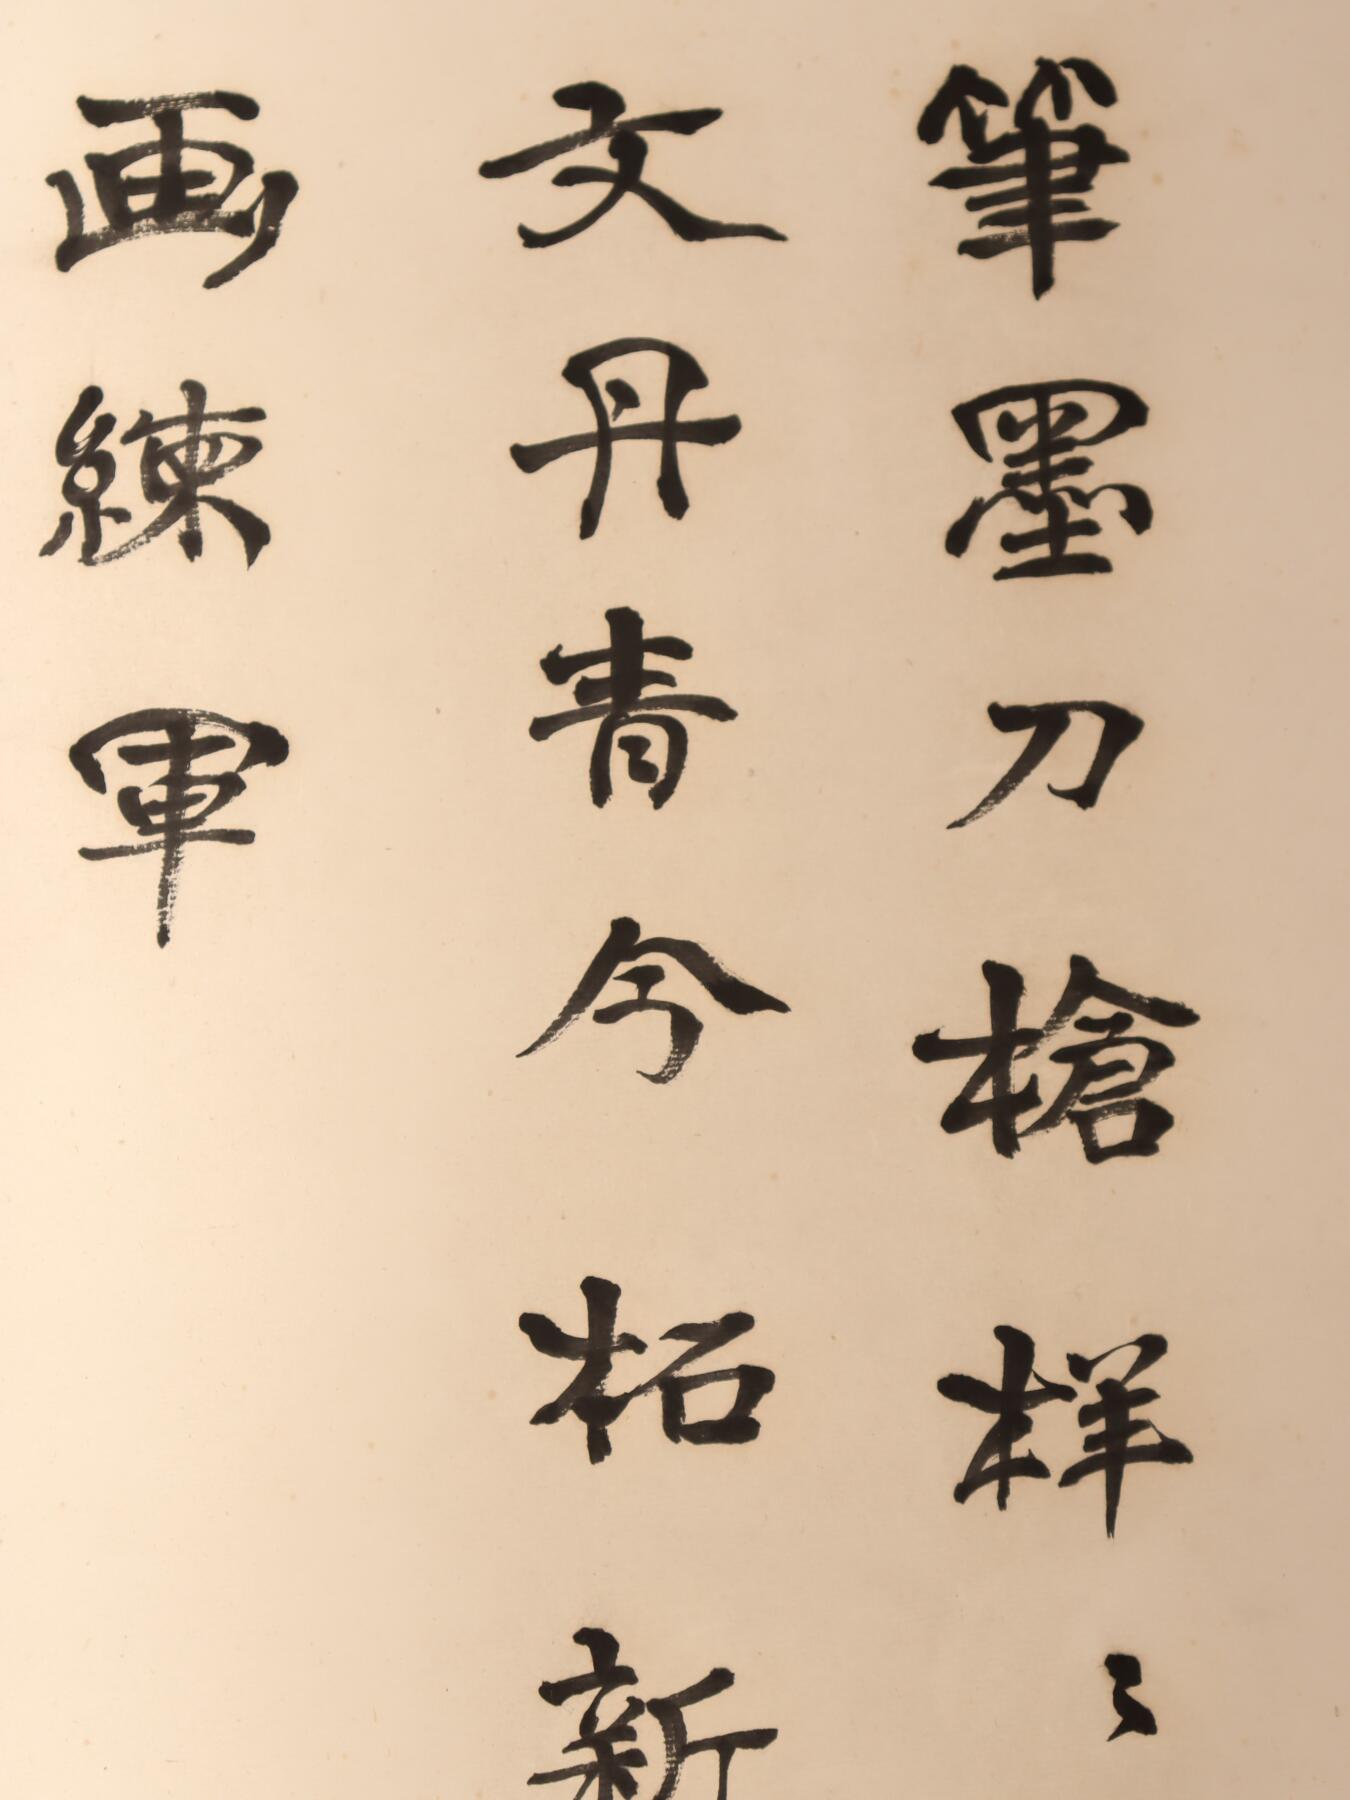 筆墨刀槍样〻
文丹青今柘新
画練軍